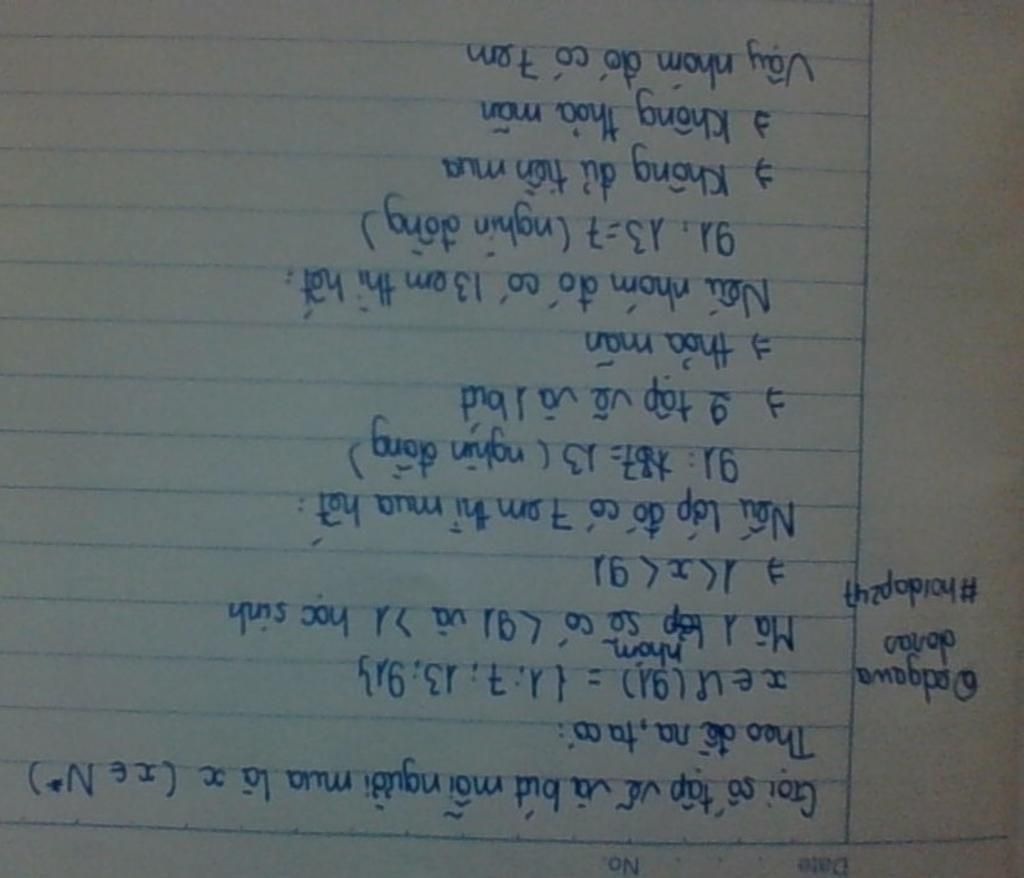 Date No.
Gọi số tập vở và bút mỗi người mua là x (x ∈ N*)
Theo đề ra, ta có:
x ∈ Ư(91) = {1; 7; 13; 91}
Mà 1 nhóm sẽ có < 91 và > 1 học sinh
⇒ 1 < x < 91
Nếu lớp đó có 7 em thì mua hết:
91 : 7 = 13 (nghìn đồng)
⇒ 2 tập vở và 1 bút
⇒ thỏa mãn
Nếu nhóm đó có 13 em thì hết:
91 : 13 = 7 (nghìn đồng)
⇒ Không đủ tiền mua
⇒ Không thỏa mãn
Vậy nhóm đó có 7 em
@adgawa
danas
#hoidap247